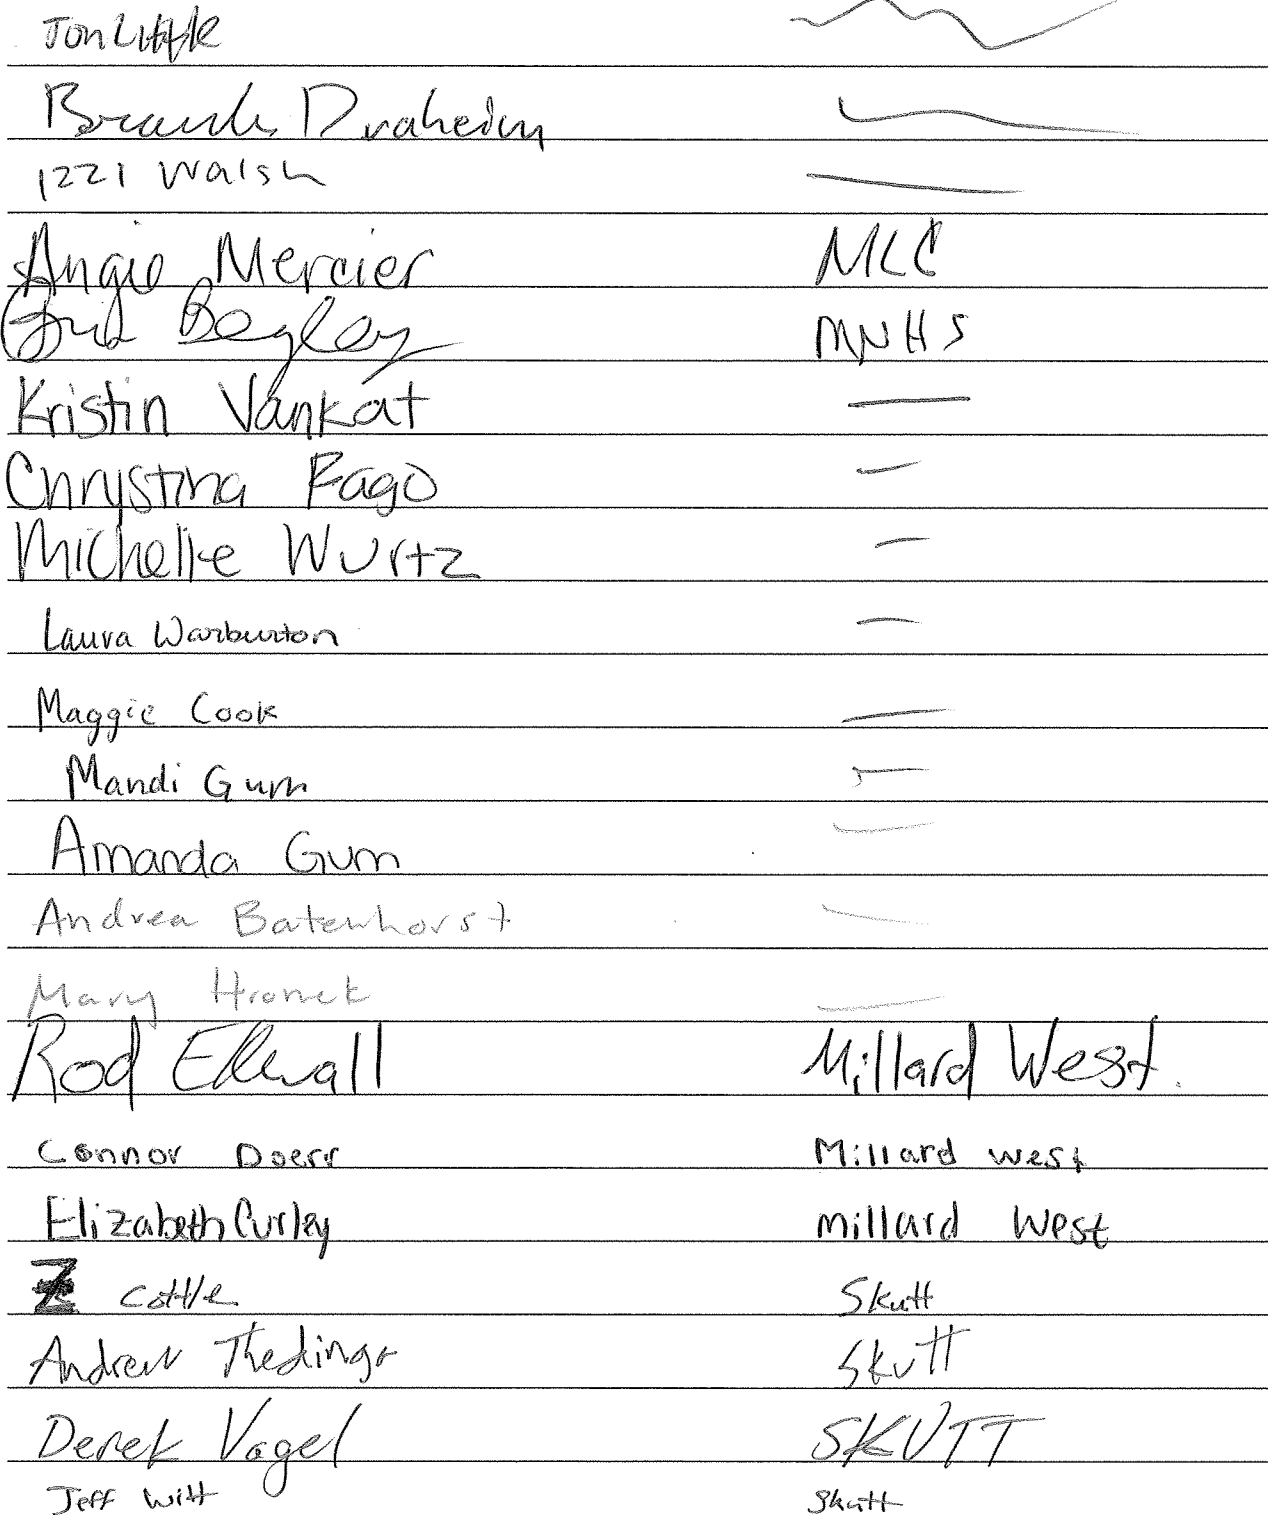 Jon Little
Draheim
1221 Walsh
Angie Mercier MLC
Begley MNHS
Kristin Vankat
Chrystina Fago
Michelle Wurtz
Laura Warburton
Maggie Cook
Mandi Gum
Amanda Gum
Andrea Batenhorst
Mary Hronek
Rod Ellwall Millard West.
Connor Doerr Millard west
Elizabeth Curley Millard West
Z Cottle Skutt
Andrew Thedinga Skutt
Derek Vogel SKUTT
Jeff Witt Skutt